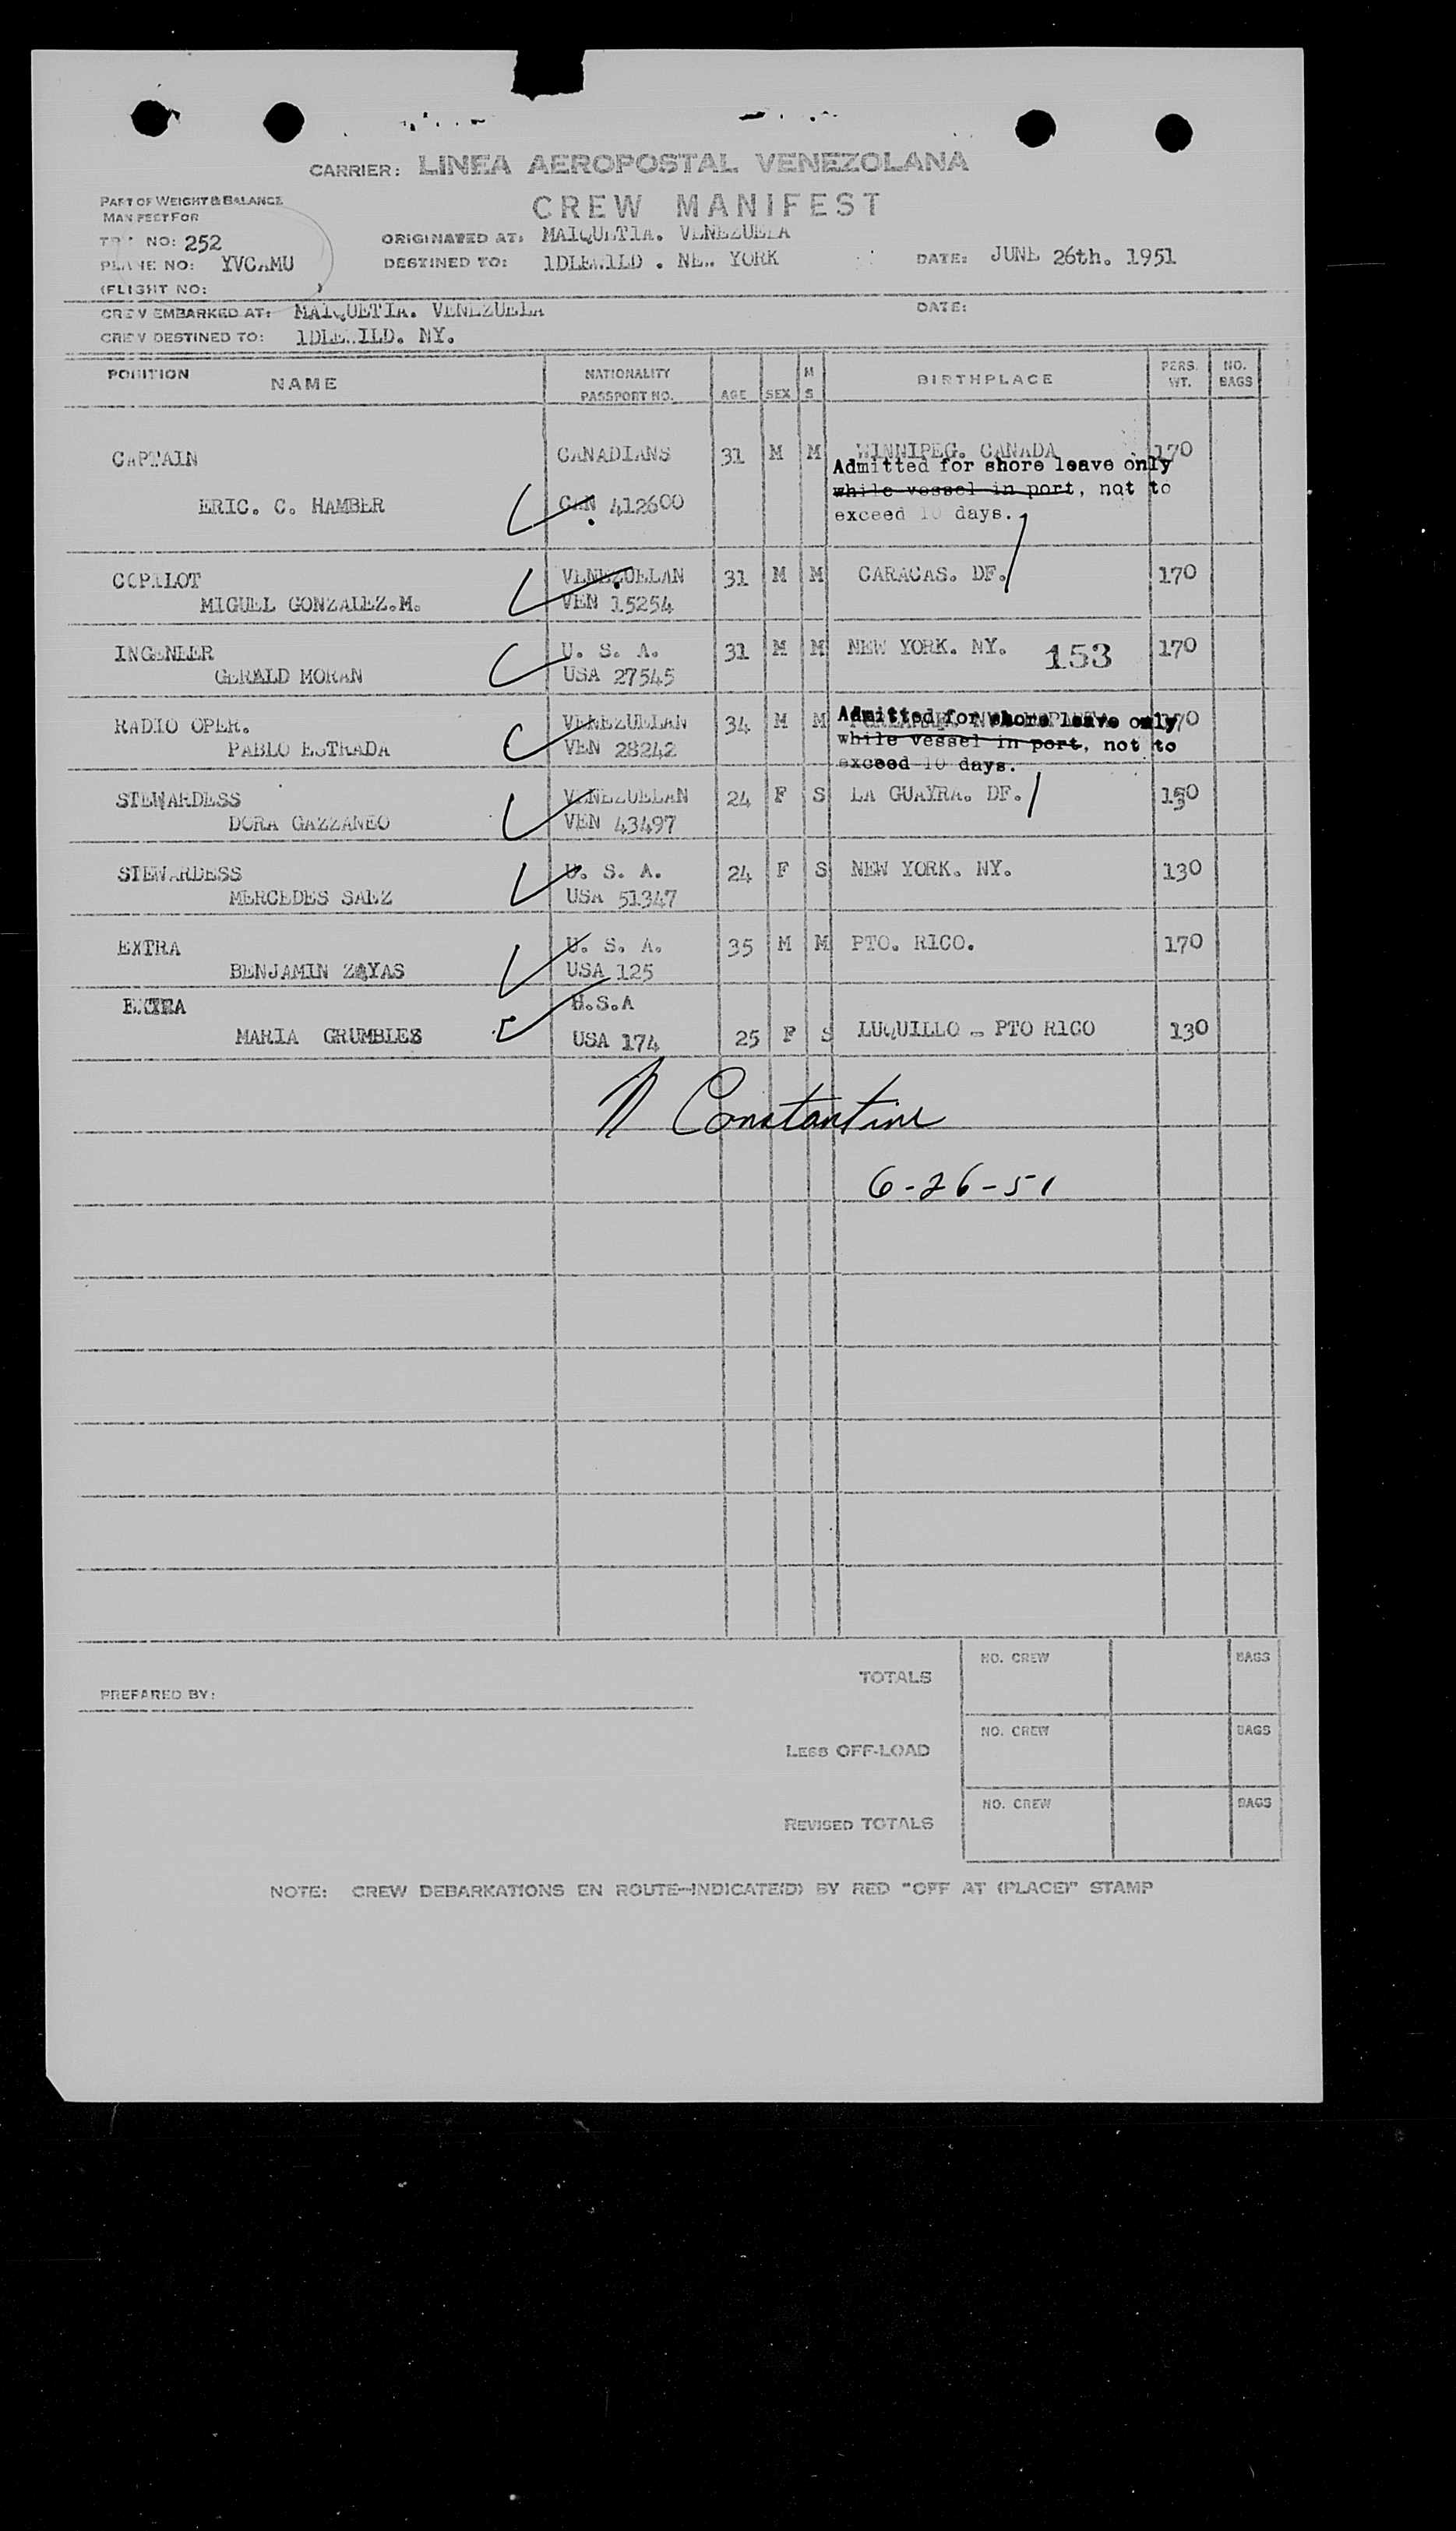 CARRIER: LINEA AEROPOSTAL VENEZOLANA
CREW MANIFEST
PART OF WEIGHT & BALANCE
MANIFEST FOR
TRIP NO: 252
PLANE NO: YVCAMU
(FLIGHT NO: )
ORIGINATED AT: MAIQUETIA. VENEZUELA
DESTINED TO: 1DLEWILD . NEW YORK
DATE: JUNE 26th. 1951
CREW EMBARKED AT: MAIQUETIA. VENEZUELA DATE:
CREW DESTINED TO: 1DLEWILD. NY.
POSITION NAME NATIONALITY PASSPORT NO. AGE SEX M S BIRTHPLACE PERS. WT. NO. BAGS
CAPTAIN CANADIANS 31 M M WINNIPEG. CANADA 170
Admitted for shore leave only
while vessel in port, not to
exceed 10 days.
ERIC. C. HAMBER CAN 412600
COPILOT VENEZUELAN 31 M M CARACAS. DF. 170
MIGUEL GONZALEZ.M. VEN 15254
INGENEER U. S. A. 31 M M NEW YORK. NY. 153 170
GERALD MORAN USA 27545
RADIO OPER. VENEZUELAN 34 M M 170
PABLO ESTRADA VEN 28242
Admitted for shore leave only
while vessel in port, not to
exceed 10 days.
STEWARDESS VENEZUELAN 24 F S LA GUAYRA. DF. 130
DORA GAZZANEO VEN 43497
STEWARDESS U. S. A. 24 F S NEW YORK. NY. 130
MERCEDES SAEZ USA 51347
EXTRA U. S. A. 35 M M PTO. R1CO. 170
BENJAMIN ZAYAS USA 125
EXTRA U.S.A
MARIA GRUMBLES USA 174 25 F S LUQUILLO - PTO R1CO 130
N Constantine
6-26-51
PREPARED BY:
TOTALS NO. CREW BAGS
LESS OFF-LOAD NO. CREW BAGS
REVISED TOTALS NO. CREW BAGS
NOTE: CREW DEBARKATIONS EN ROUTE—INDICATE(D) BY RED "OFF AT (PLACE)" STAMP